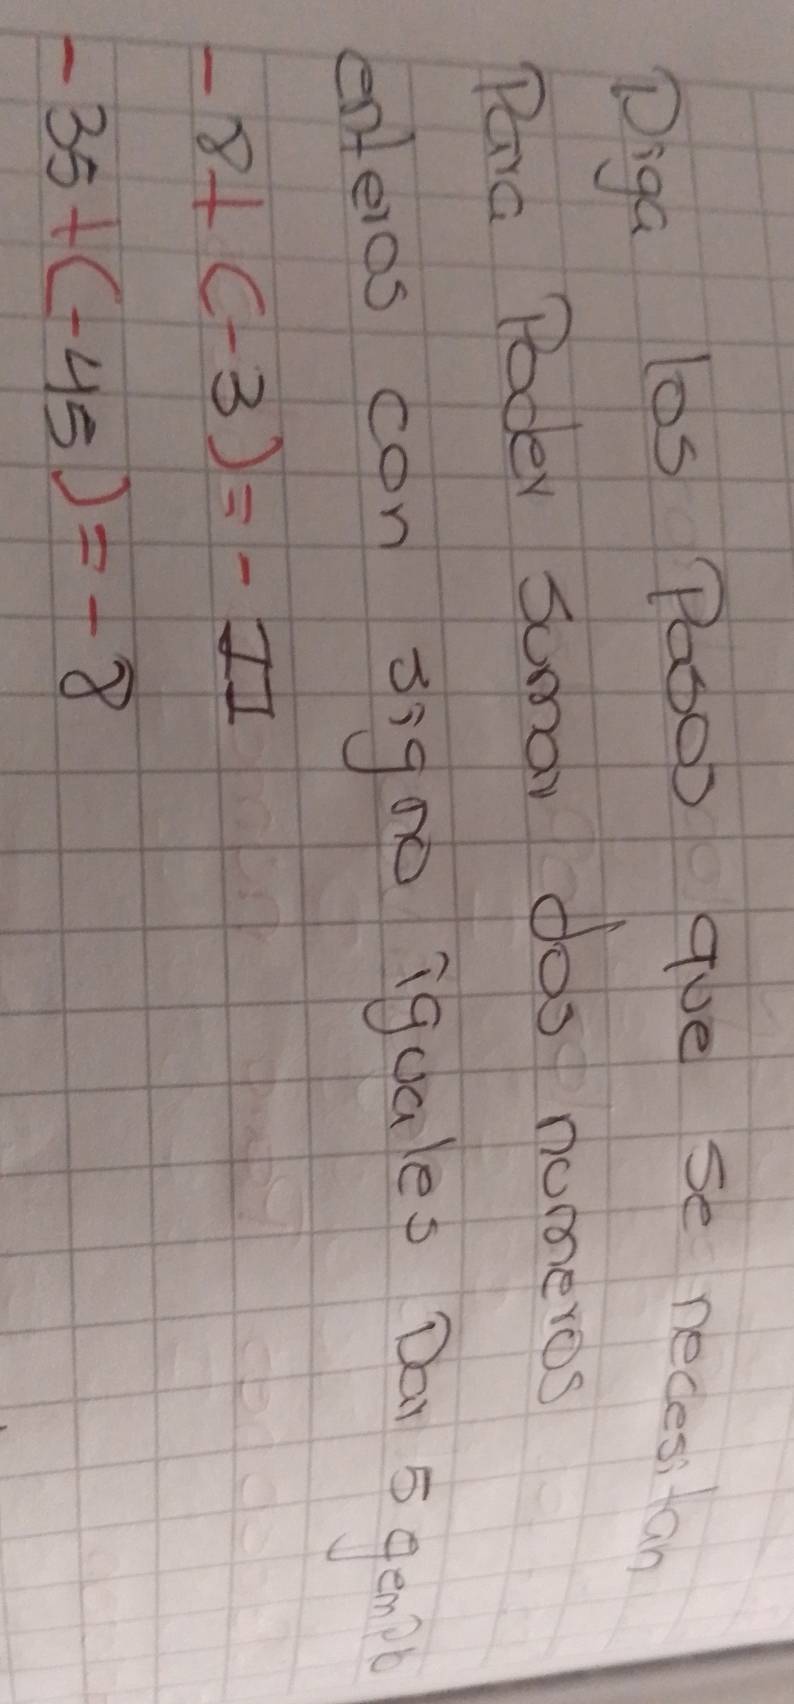 Diga los Pasos que se necesitan
Para Poder Sumar dos numeros
enteros con signo iguales Dar 5 gemplo
- 8 + (- 3) = - 11
- 35 + (- 45) = - 8